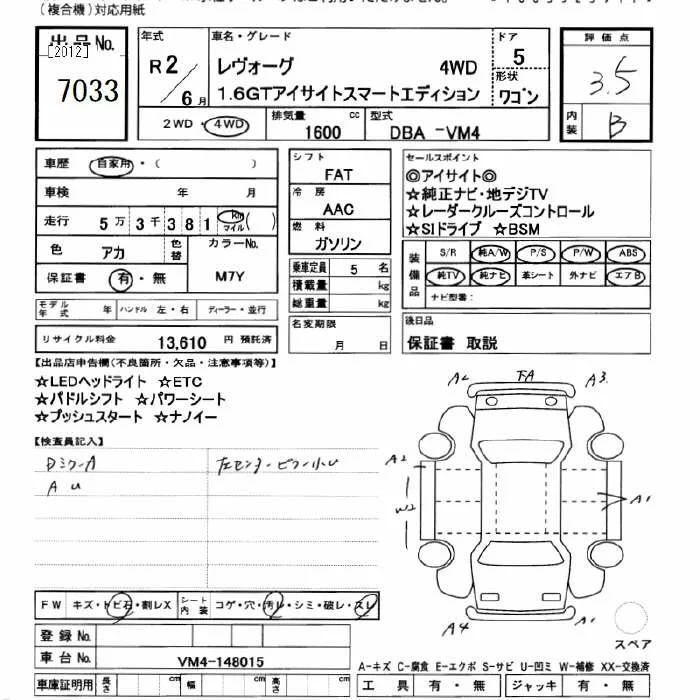 (複合機)対応用紙
出品No.
[2012]
7033
年式
R2/6月
車名・グレード
レヴォーグ 4WD
1.6GTアイサイトスマートエディション
ドア
5
形状
ワゴン
評価点
3.5
内装
B
2WD・4WD
排気量
1600 cc
型式
DBA -VM4
車歴 自家用・( )
車検 年 月
走行 5万3千381 Km マイル( )
色 アカ 色替
カラーNo.
M7Y
保証書 有・無
モデル年式 年 ハンドル 左・右 ディーラー・並行
リサイクル料金 13,610 円 預託済
シフト
FAT
冷房
AAC
燃料
ガソリン
乗車定員 5 名
積載量 kg
総重量 kg
名変期限
月 日
セールスポイント
◎アイサイト◎
☆純正ナビ・地デジTV
☆レーダークルーズコントロール
☆SIドライブ ☆BSM
装備品
S/R 純A/W P/S P/W ABS
純TV 純ナビ 革シート 外ナビ エアB
ナビ型番:
後日品
保証書 取説
【出品店申告欄(不良箇所・欠品・注意事項等)】
☆LEDヘッドライト ☆ETC
☆パドルシフト ☆パワーシート
☆プッシュスタート ☆ナノイー
【検査員記入】
DミラーA
AU
左センターピラー小U
A2 A3
A2
W2
A1
A4 A1
スペア
FW キズ・トビ石・割レX
シート内装 コゲ・穴・汚レ・シミ・破レ・スレ
登録No.
車台No. VM4-148015
A-キズ C-腐食 E-エクボ S-サビ U-凹ミ W-補修 XX-交換済
車庫証明用 長さ 幅 高さ
工具 有・無 ジャッキ 有・無